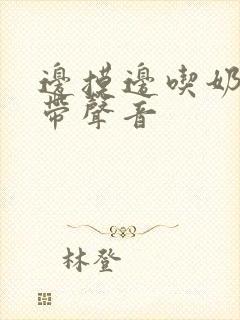 邊摸邊喫奶
帶聲音
林登